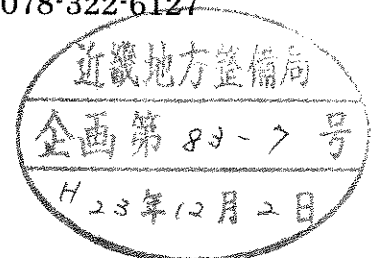 078-322-6127
近畿地方整備局
企画第 83-7 号
H 23年12月2日